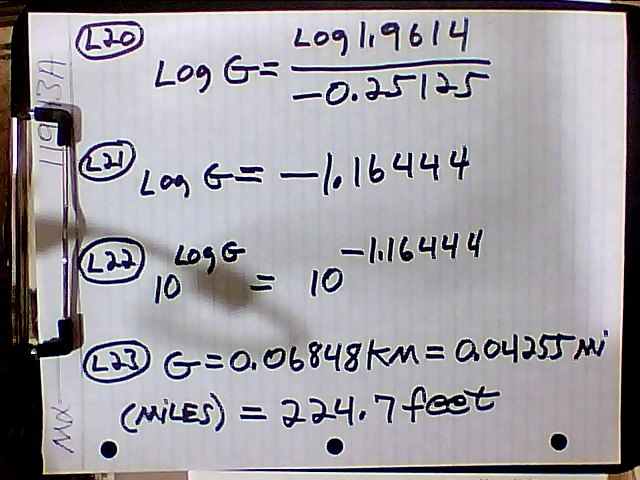 L20 Log G = Log 1.9614 / -0.25125
L21 Log G = -1.16444
L22 10^Log G = 10^-1.16444
L23 G = 0.06848 KM = 0.04255 Mi
(MiLES) = 224.7 feet